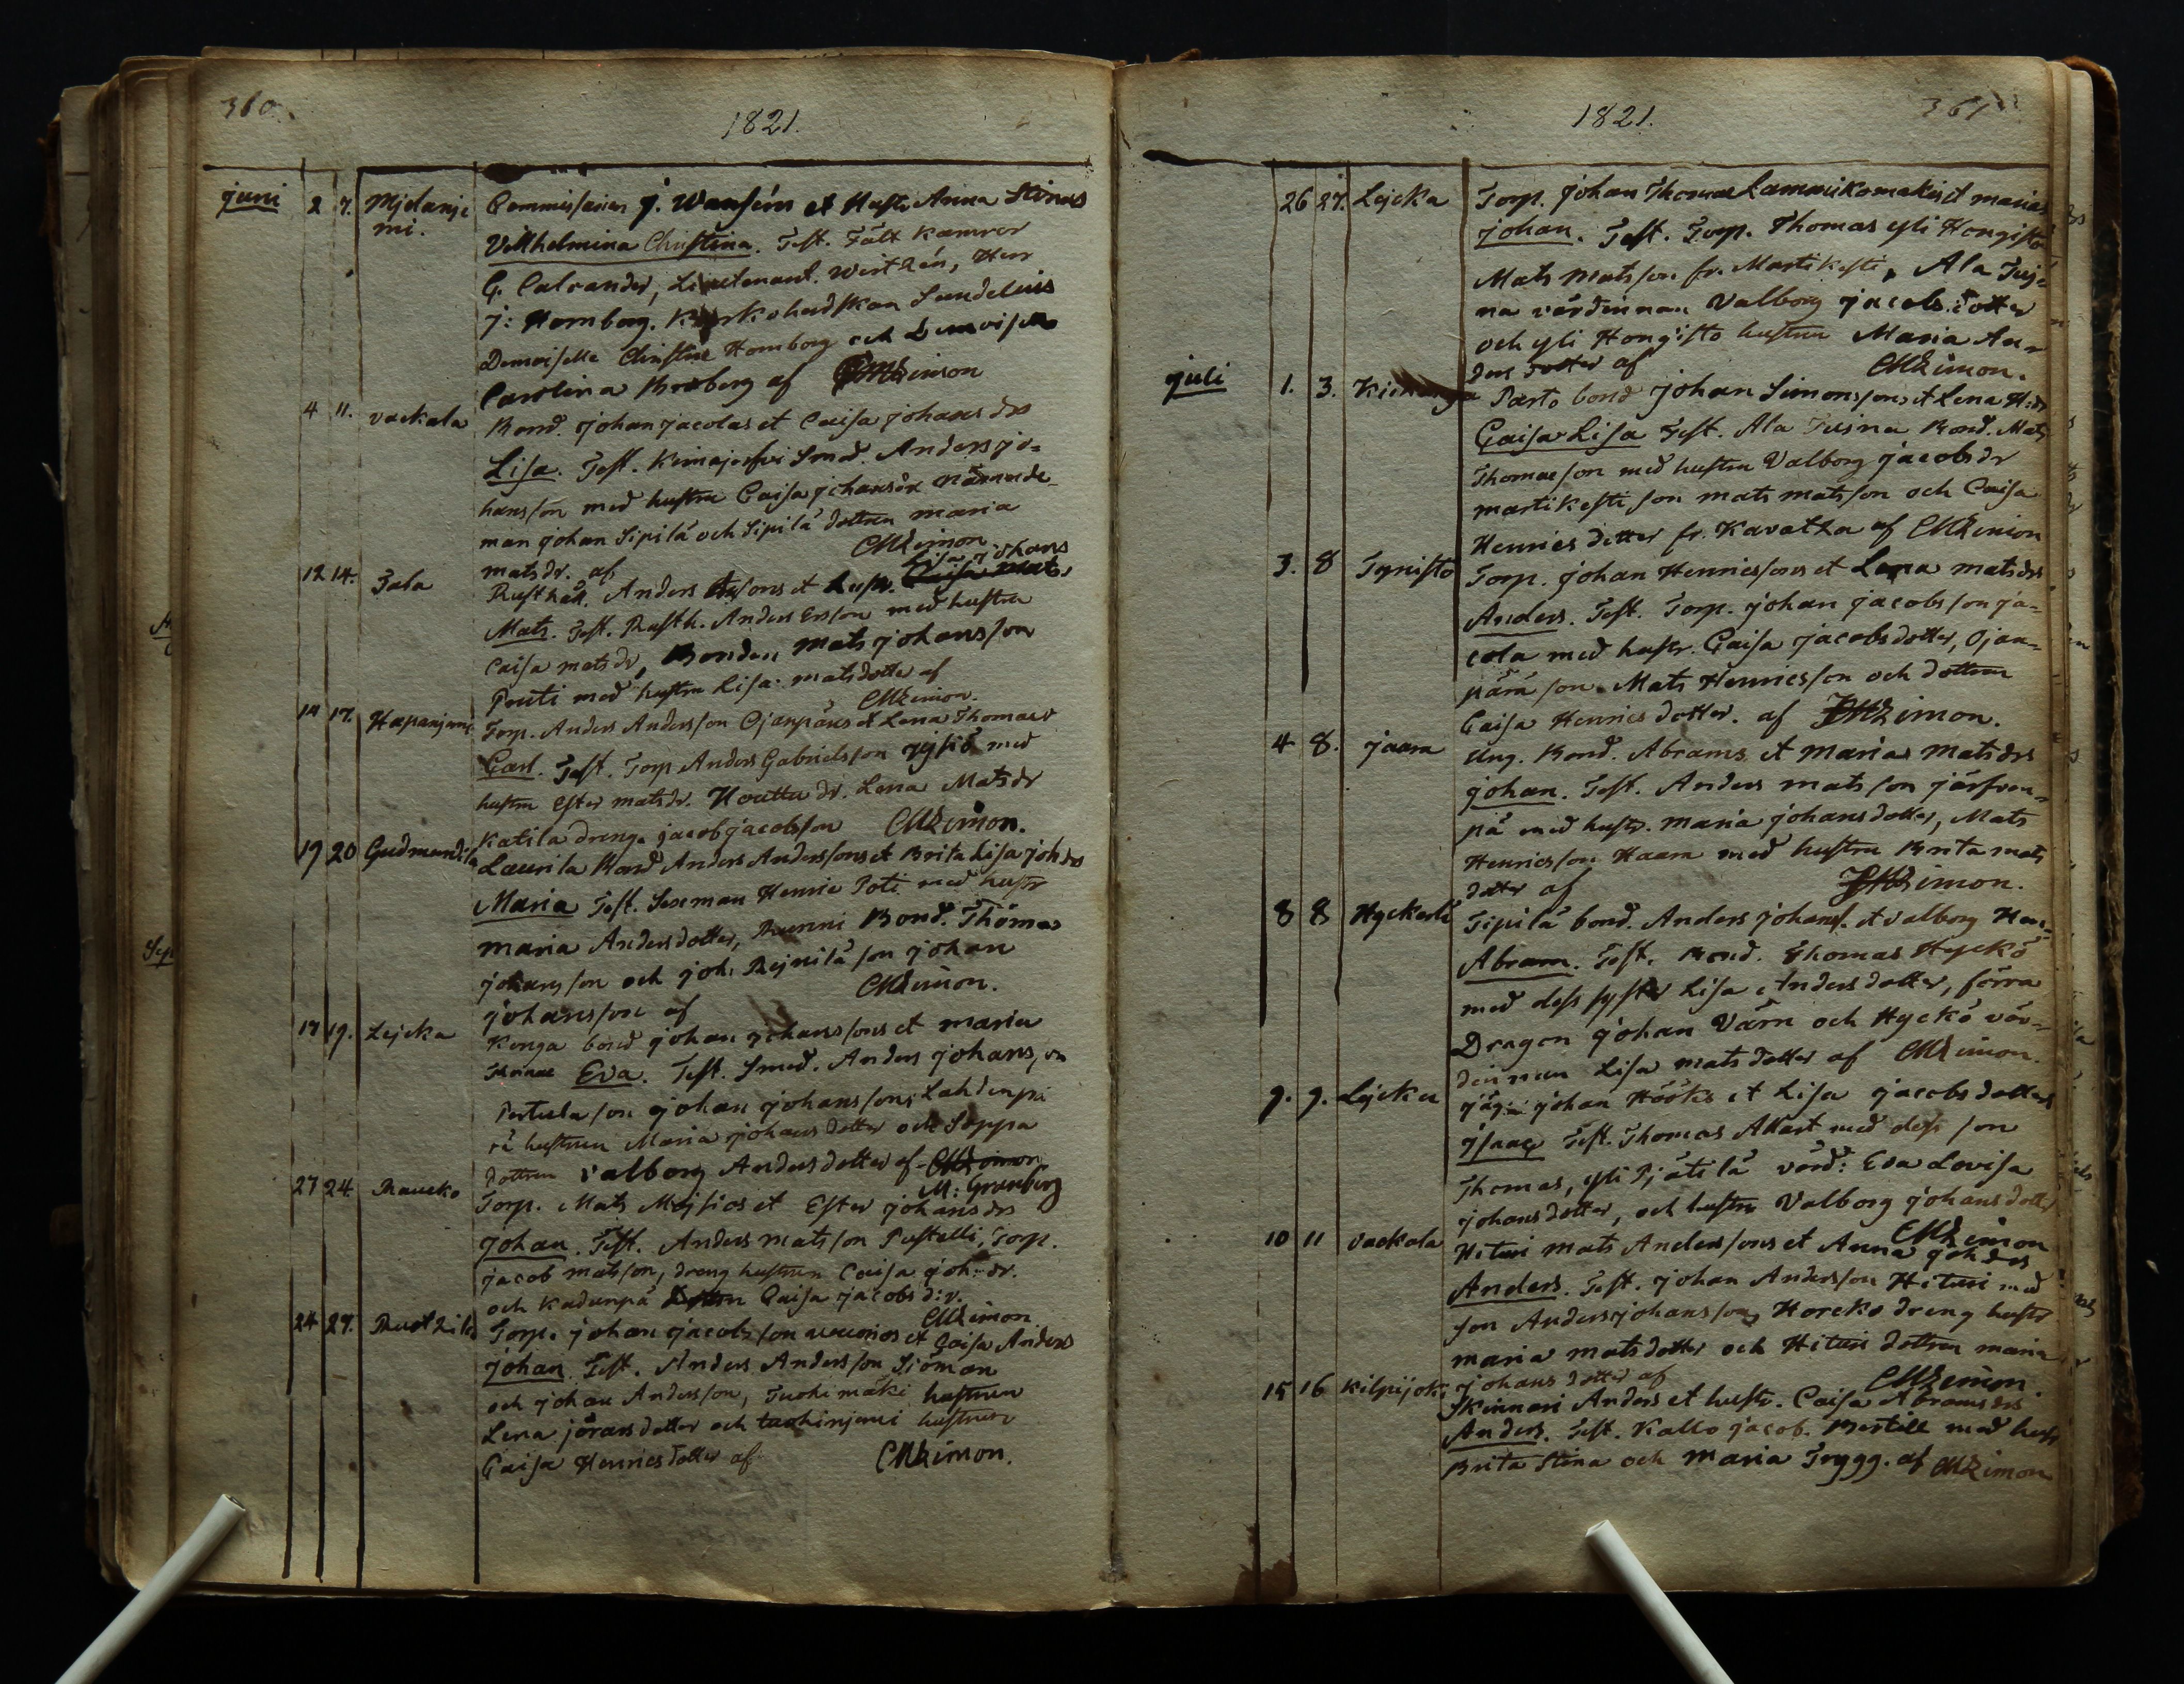 360.
1821.
juni 2 7. Mjdanje Commissarien J. Wansens et Hustr Anna Stinas
mi. Villhelmina Christina. Test. Fält kamrer
G. Calrander, Lieutenant. Wirtzén, Herr
J: Homberg. Sundelius
Demoiselle Christine Homberg och Demoiselle
Carolina Broberg af Simon
4 11. vackala Bond. Johan jacolas et Caisa johans drs
Lisa. Test. Smed. Anders jo-
hansson med hustru Caisa johansdr nämnde-
man johan Sipilä och Sipilä dottren maria
matsdr. af CMZimon
12 14. Tala Rusthåll. Anders Ersons et hustr. Lisa johans
Mats. Test. Rusth. Anders Ersson med hustru
Caisa matsdr, Bonden Mats johansson
Prati med hustru Lisa matsdotter af
CMZimon.
14 17. Hapanjemi Torp. Anders Andersson Ojanpäs et Lena Thomasdr
Carl. Test. Torp Anders Gabrielsson med
hustru Ester matsdr. Houttu dr. Lena Matsdr
Katila dreng. jacob jacobsson CMZimon.
19 20 Gudmundila Laurila Bond Anders Anderssons et Brita Lisa joh drs
Maria Test. Sexman Henric Poti med hustr
maria Andersdotter, Bond. Thomas
johansson och joh. Rejnilä son johan
johansson af CMZimon.
17 19. Lejcka Kenga bond johan johanssons et maria
Eva. Test. Smed. Anders johansson
Pertula son johan johansson, Lahdenpe
rä hustrun Maria johans dotter och Soppa
dottren Valborg Anders dotter af CMZimon
M: Granberg
27 24. Raucko Torp. Mats Mejsios et Ester johans drs
Johan. Test. Anders matsson Pustelli, Torp.
jacob matsson, dreng hustrun Caisa joh. dr.
och Kadunpä Dottern Caisa jacobs d:r.
CMZimon
24 27. Ruotzila Torp. johan jacobsson et Caisa Anders
Johan. Test. Anders Andersson Siöman
och johan Andersson, Tuohimäki hustrun
Lena jörans dotter och hustrun
Caisa Henrics dotter af CMZimon.
1821.
361
26 27. Lejcka Torp. Johan Thomas et marias
Johan. Test. Torp. Thomas yli Hongisto
Mats Matsson fr. Martikesti, Ala Tuj-
na värdinnan Valborg jacobs dotter
och yli Hongisto hustrun Maria An-
ders dotter af CMZimon.
juli 1. 3. Parto bond Johan Simonssons et Lena H:dr
Caisa Lisa Test. Ala Tujna Bond. Mats
Thomasson med hustru Valborg jacobs dr
martikesti son mats matsson och Caisa
Henrics dotter fr. Kavatza af CMZimon
3. 8 Tynisto Torp. Johan Henricssons et Lena mats drs
Anders. Test. Torp. johan jacobsson ja-
cola med hustr. Caisa jacobsdotter, Ojan-
pärä son Mats Henricsson och dottren
Caisa Henrics dotter. af CMZimon.
4 8. jaara Ung. Bond. Abrams et Marias Mats drs
johan. Test. Anders matsson järfven-
pä med hustr. maria johansdotter, Mats
Henricsson Haara med hustru Brita mats
dotter af CMZimon.
8 8 Hyckerlä Sipilä bond. Anders johans. et valborg Hen:
Abram. Test. Bond. Thomas Hyckö
med dess syster Lisa Anders dotter, förra
Dragon johan Värn och Hyckö vär-
dinnan Lisa mats dotter af CMZimon.
9. 9. Lejcka johan Hööks et Lisa jacobs dotters
Jsaac Test. Thomas Allart med dess son
Thomas, yli Pjätilä värd: Eva Lovisa
johans dotter, och hustru Valborg johans dotter
CMZimon
10 11 vackala Hituri mats Anderssons et Anna joh drs
Anders. Test. johan Andersson Hituri med
son Anders johansson, Horcko dreng hustr
maria mats dotter och Hituri dottren maria
johans dotter af CMZimon.
15 16 kilpijoki Skinnari Anders et hustr. Caisa Abrams drs
Anders. Test. Kallo jacob Bertill med hustr
Brita Stina och Maria Trygg. af CMZimon